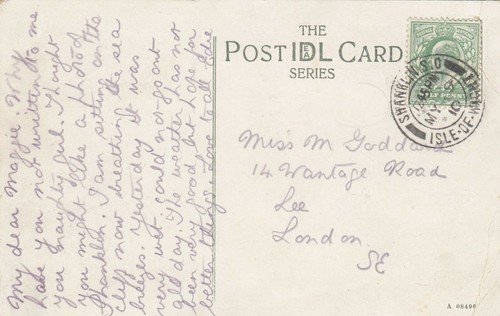 THE
POST IDEAL CARD
SERIES
SHANKLIN S.O
ISLE-OF-WIGHT
MY
10
HALF PENNY
My dear Maggie Why
have you not written to me
you naughty girl. I thought
you might like a photo of
Shanklin. I am sitting on the
cliff now breathing the sea
breeze. Yesterday it was
very wet. Could not go out
all day. The weather has not
been very good but hope for
better Love to all
Miss M Goddard
14 Wantage Road
Lee
London
SE
A 08496